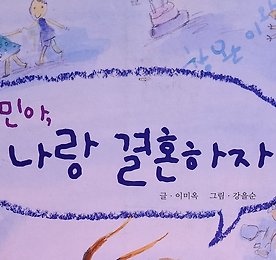 민아,
나랑 결혼하자
글·이미옥 그림·강을순